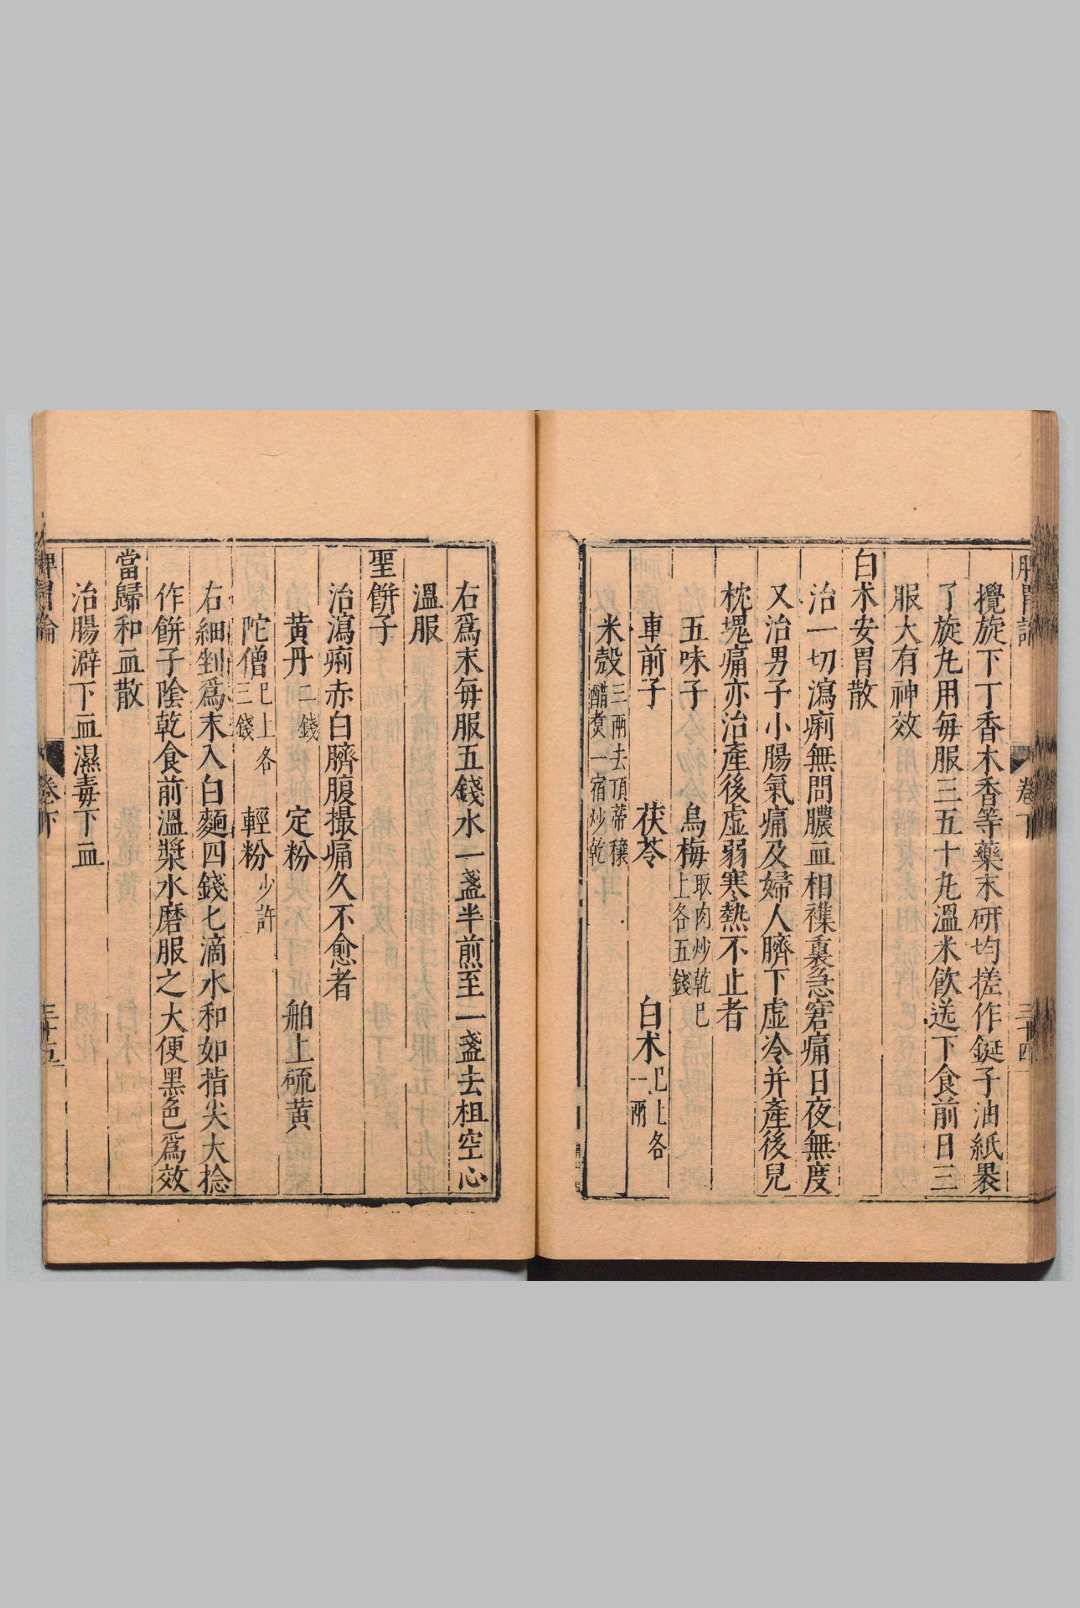 脾胃論 卷下 三十四
攪旋下丁香木香等藥末研均搓作鋌子油紙褁
了旋丸用每服三五十丸溫米飲送下食前日三
服大有神效
白朮安胃散
治一切瀉痢無問膿血相襍裏急窘痛日夜無度
又治男子小腸氣痛及婦人臍下虛冷并產後兒
枕塊痛亦治產後虛弱寒熱不止者
五味子 烏梅取肉炒乾已上各五錢
車前子 茯苓 白朮已上各一兩
米殼三兩去頂蒂穰醋煮一宿炒乾
右爲末每服五錢水一盞半煎至一盞去柤空心
溫服
聖餅子
治瀉痢赤白臍腹撮痛久不愈者
黃丹二錢 定粉 舶上硫黃
陀僧已上各三錢 輕粉少許
右細剉爲末入白麵四錢匕滴水和如指尖大捻
作餅子陰乾食前溫漿水磨服之大便黑色爲效
當歸和血散
治腸澼下血濕毒下血
脾胃論 卷下 三十五